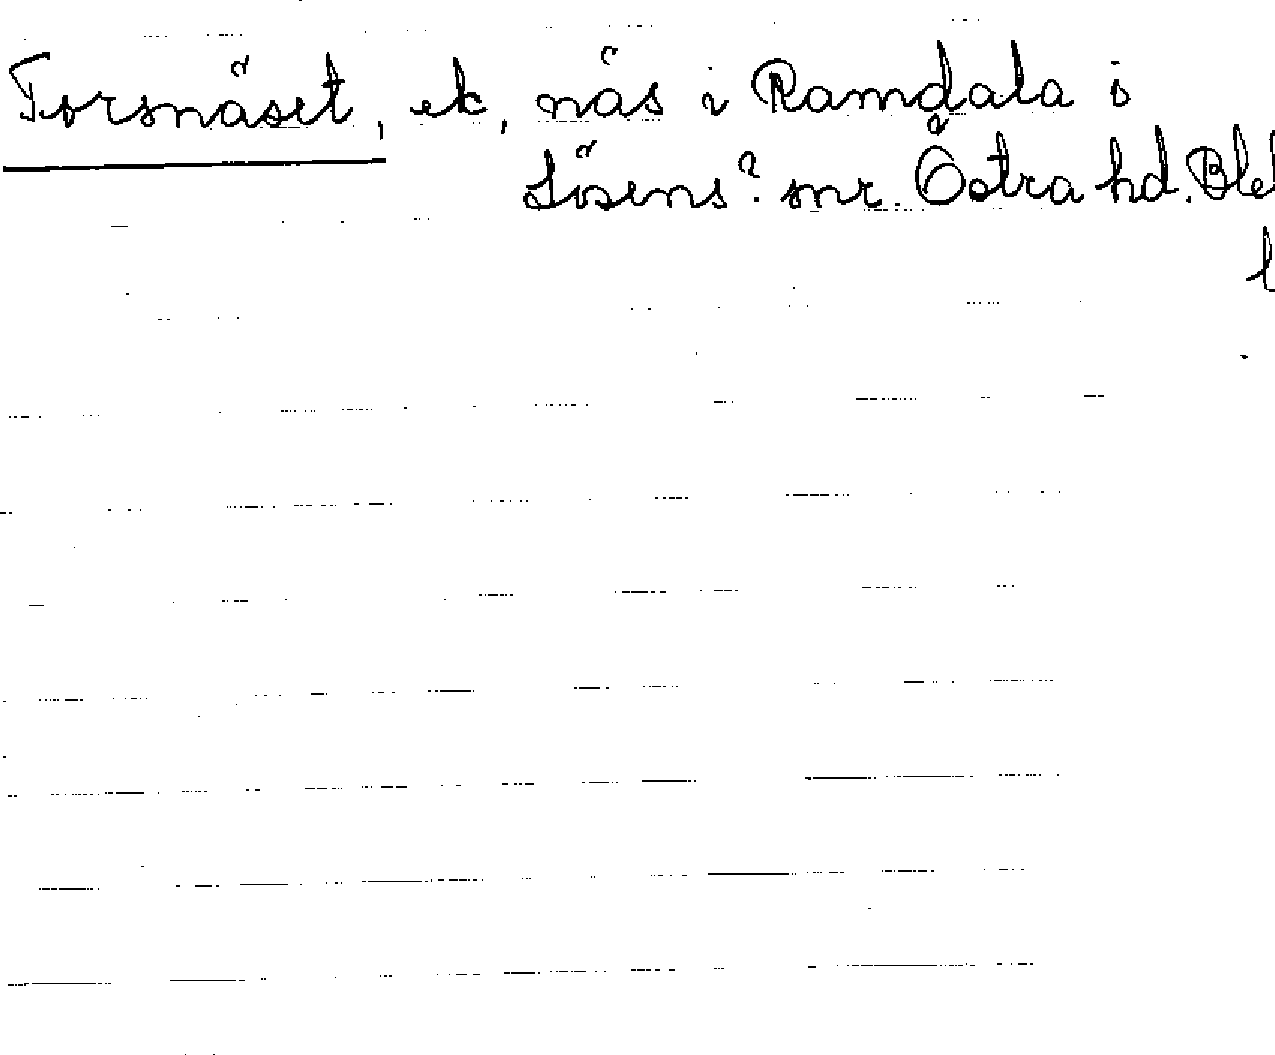 Torsnäset, ek, näs i Ramdala s
Lösens? sn. Östra hd. Ble
l